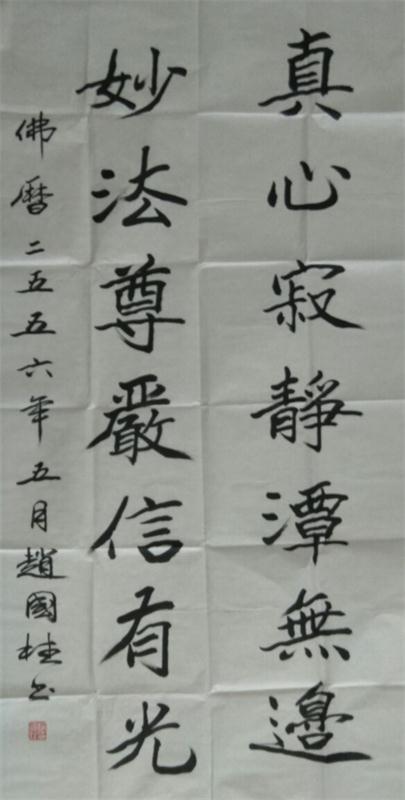 真心寂靜潭無邊
妙法尊嚴信有光
佛曆二五五六年五月趙國桂书